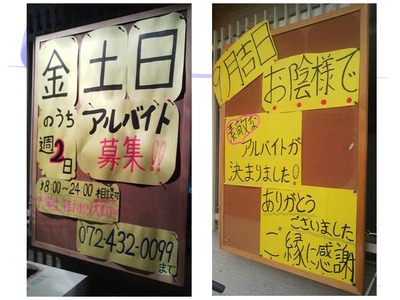 金土日
のうち アルバイト
週2日 募集!!
18:00～24:00 相談可
072-432-0099
まで
9月吉日
お陰様で
素敵な
アルバイトが
決まりました!
ありがとう
ございました
ご縁に感謝